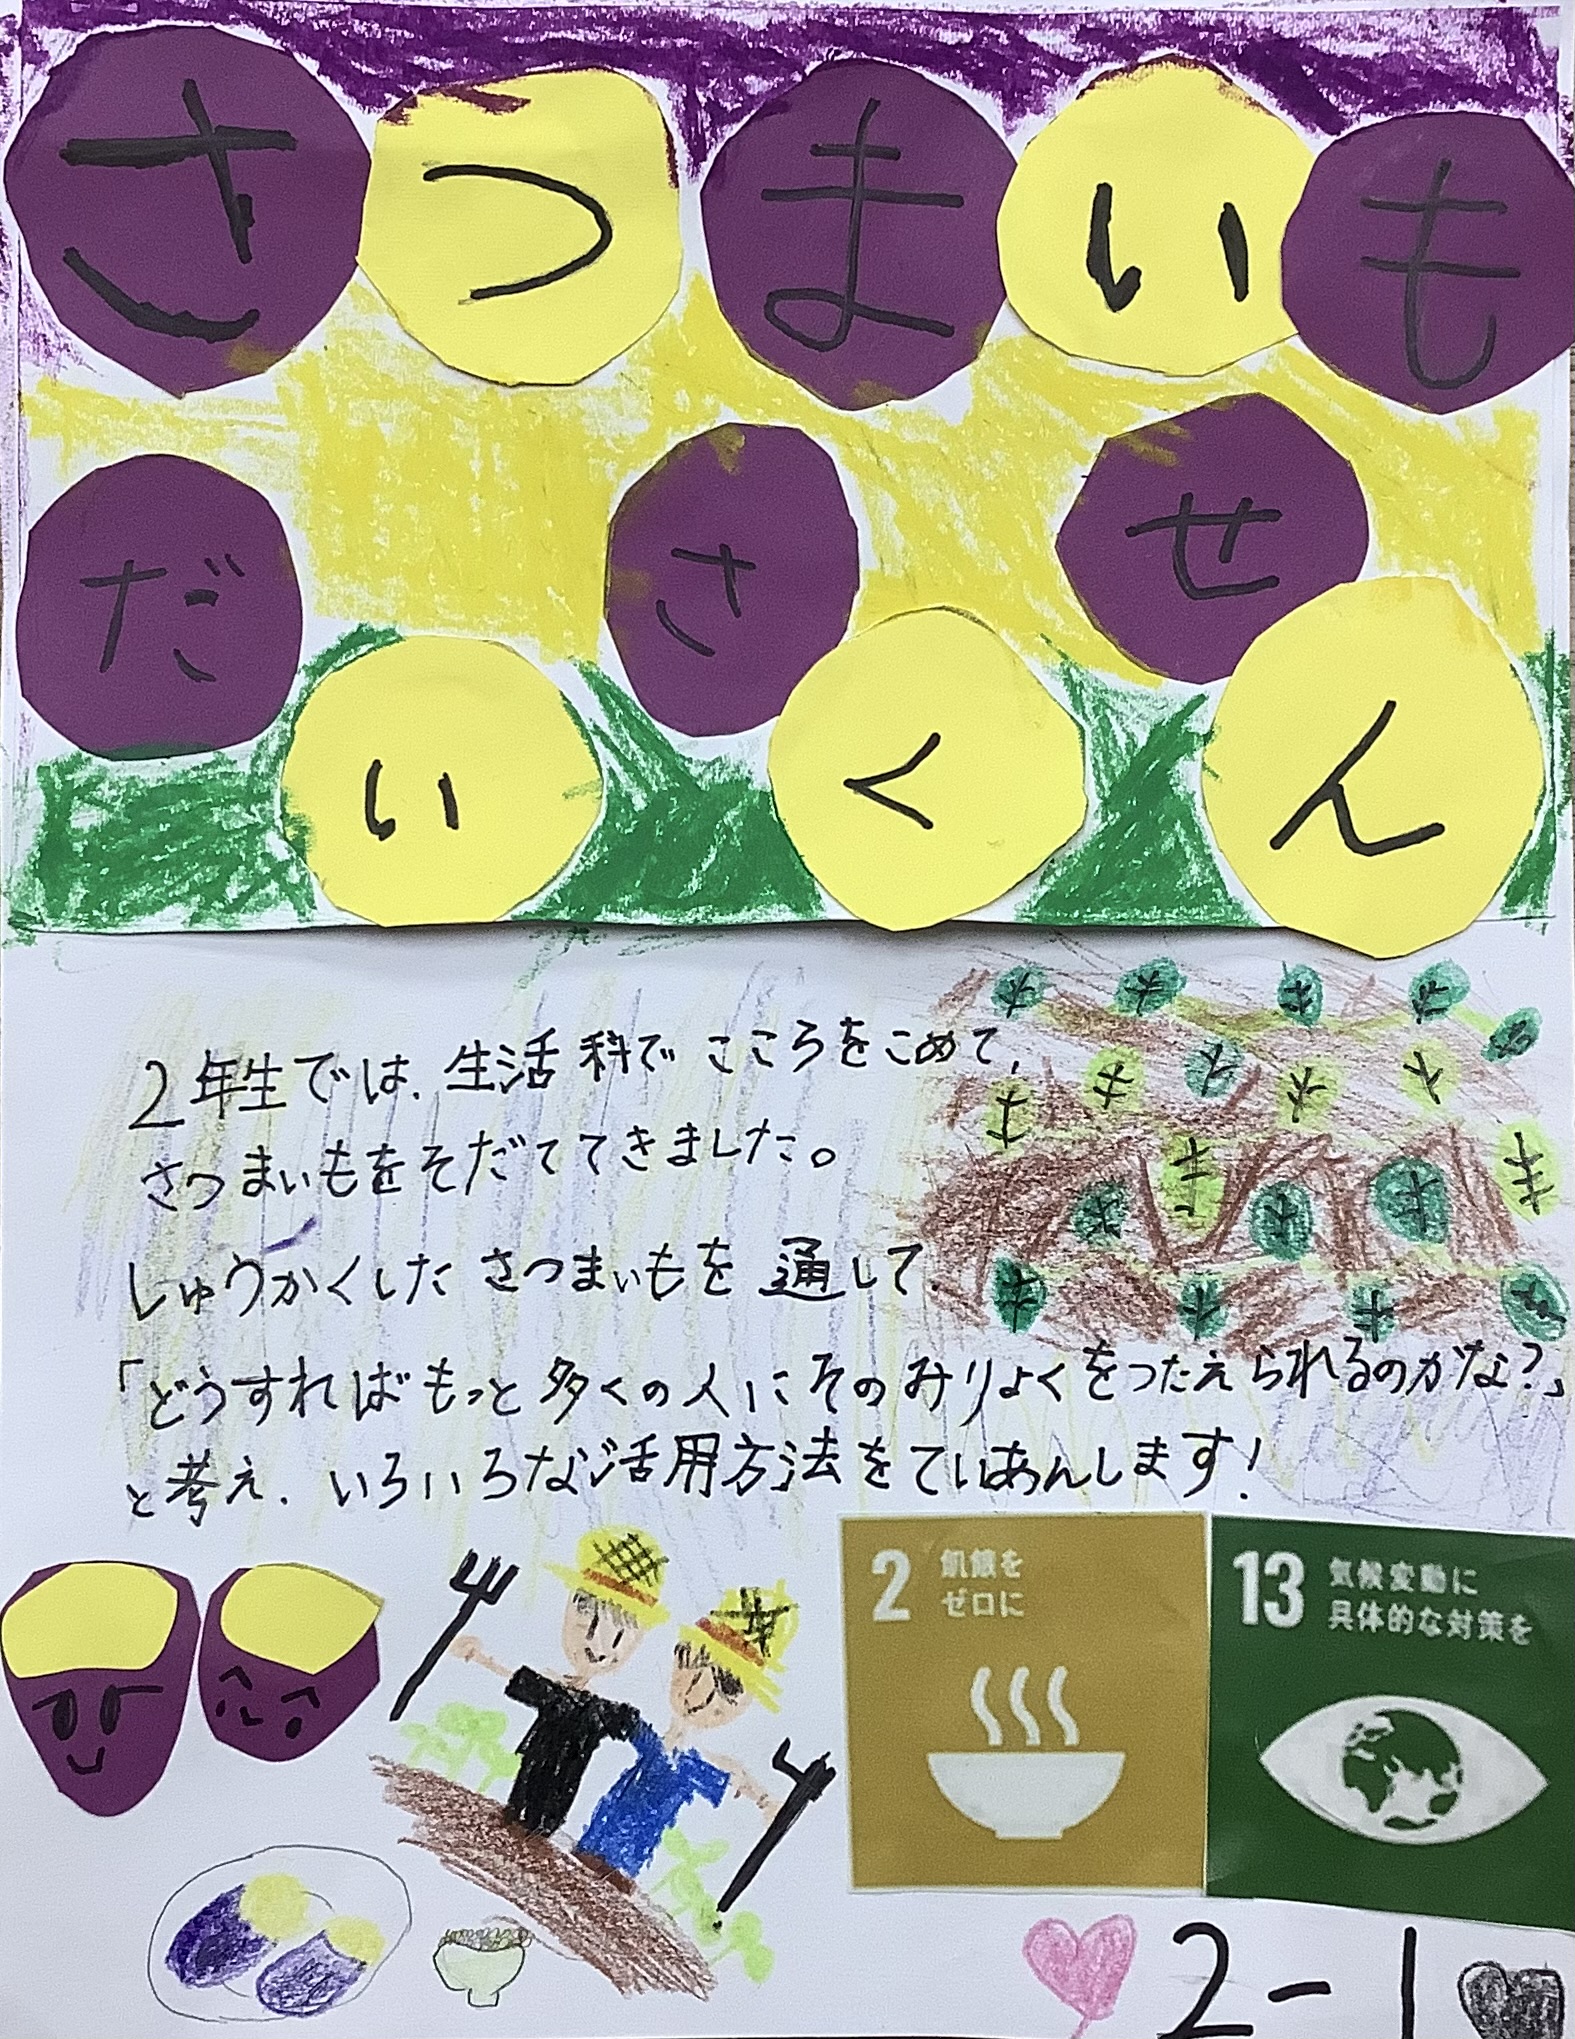 さつまいも
だいさくせん
2年生では、生活科でこころをこめて、
さつまいもをそだててきました。
しゅうかくしたさつまいもを通して、
「どうすればもっと多くの人にそのみりょくをつたえられるのかな?」
と考え、いろいろな活用方法をていあんします!
2 飢餓を
ゼロに
13 気候変動に
具体的な対策を
2-1